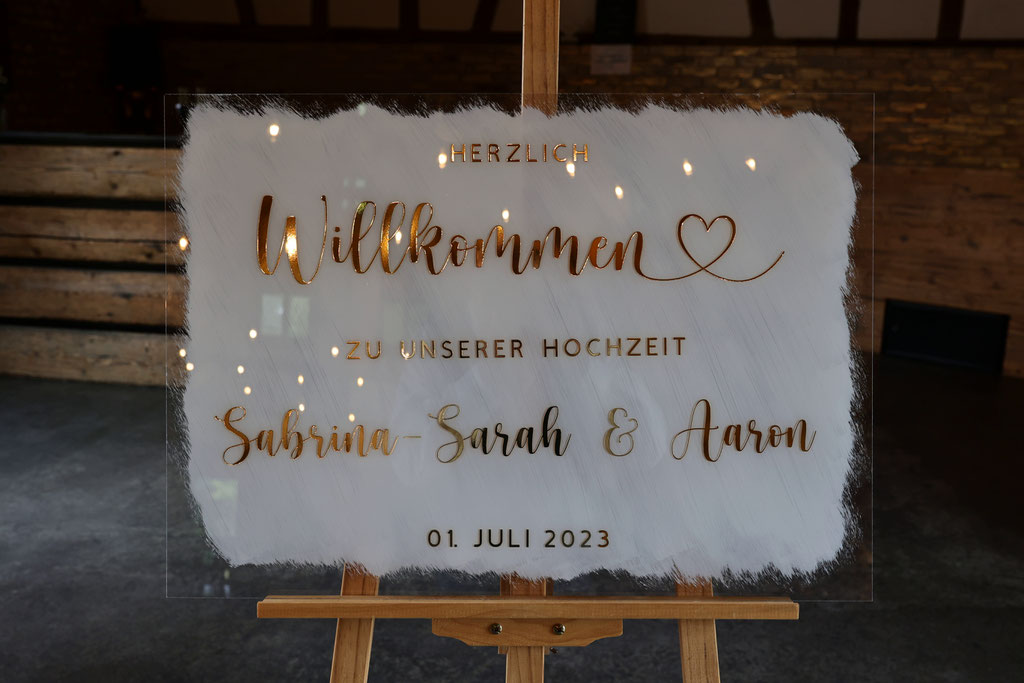 HERZLICH
Willkommen
ZU UNSERER HOCHZEIT
Sabrina-Sarah & Aaron
01. JULI 2023